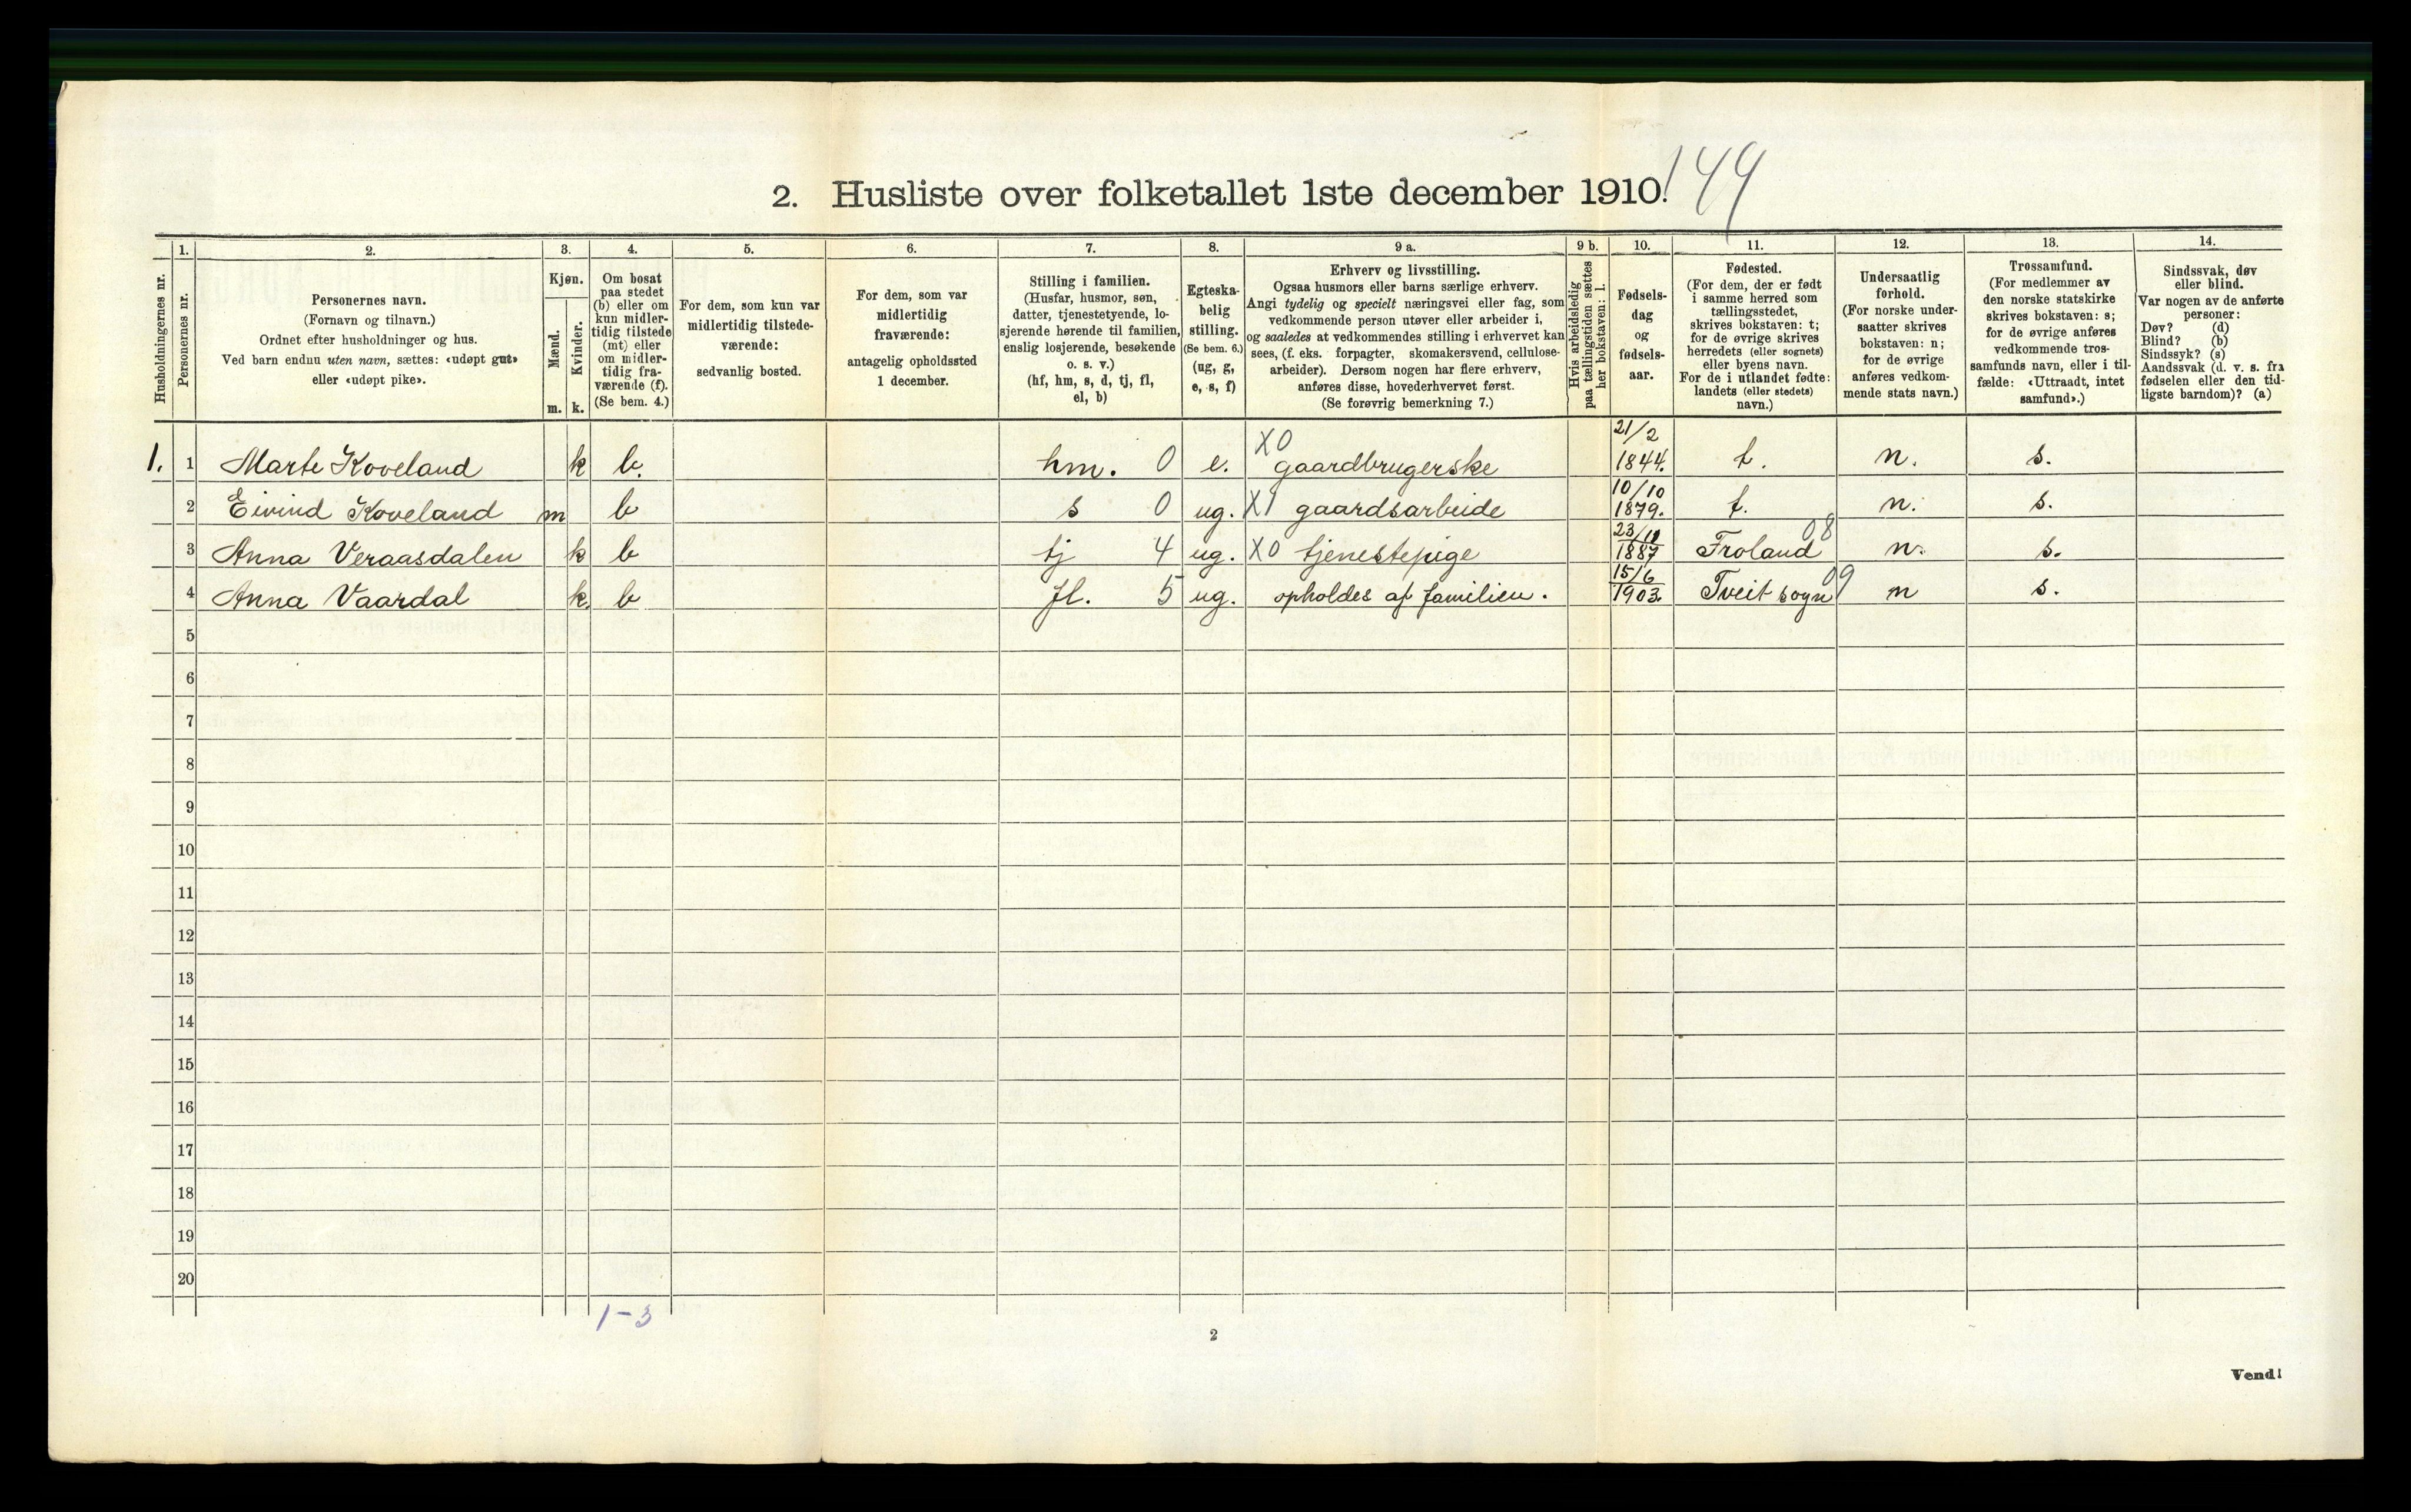 2. Husliste over folketallet 1ste december 1910.
149
Husholdningernes nr.
1.
Personernes nr.
2.
Personernes navn.
(Fornavn og tilnavn.)
Ordnet efter husholdninger og hus.
Ved barn endnu uten navn, sættes: «udøpt gut»
eller «udøpt pike».
3.
Kjøn.
Mænd.
m.
Kvinder.
k.
4.
Om bosat
paa stedet
(b) eller om
kun midler-
tidig tilstede
(mt) eller
om midler-
tidig fra-
værende (f).
(Se bem. 4.)
5.
For dem, som kun var
midlertidig tilstede-
værende:
sedvanlig bosted.
6.
For dem, som var
midlertidig
fraværende:
antagelig opholdssted
1 december.
7.
Stilling i familien.
(Husfar, husmor, søn,
datter, tjenestetyende, lo-
sjerende hørende til familien,
enslig losjerende, besøkende
o. s. v.)
(hf, hm, s, d, tj, fl,
el, b)
8.
Egteska-
belig
stilling.
(Se bem. 6.)
(ug, g,
e, s, f)
9 a.
Erhverv og livsstilling.
Ogsaa husmors eller barns særlige erhverv.
Angi tydelig og specielt næringsvei eller fag, som
vedkommende person utøver eller arbeider i,
og saaledes at vedkommendes stilling i erhvervet kan
sees, (f. eks. forpagter, skomakersvend, cellulose-
arbeider). Dersom nogen har flere erhverv,
anføres disse, hovederhvervet først.
(Se forøvrig bemerkning 7.)
9 b.
Hvis arbeidsledig
paa tællingstiden sættes
her bokstaven: l.
10.
Fødsels-
dag
og
fødsels-
aar.
11.
Fødested.
(For dem, der er født
i samme herred som
tællingsstedet,
skrives bokstaven: t;
for de øvrige skrives
herredets (eller sognets)
eller byens navn.
For de i utlandet fødte:
landets (eller stedets)
navn.)
12.
Undersaatlig
forhold.
(For norske under-
saatter skrives
bokstaven: n;
for de øvrige
anføres vedkom-
mende stats navn.)
13.
Trossamfund.
(For medlemmer av
den norske statskirke
skrives bokstaven: s;
for de øvrige anføres
vedkommende tros-
samfunds navn, eller i til-
fælde: «Uttraadt, intet
samfund».)
14.
Sindssvak, døv
eller blind.
Var nogen av de anførte
personer:
Døv? (d)
Blind? (b)
Sindssyk? (s)
Aandssvak (d. v. s. fra
fødselen eller den tid-
ligste barndom)? (a)
1. 1 Marte Koveland k b. hm. 0 e. X0 gaardbrugerske 21/2 1844. t. n. s.
2 Eivind Koveland m b s 0 ug. X1 gaardsarbeide 10/10 1879. t. n. s.
3 Anna Veraasdalen k b tj 4 ug. X0 tjenestepige 1887 Froland 08 n. s.
4 Anna Vaardal k. b fl. 5 ug. opholdes af familien. 15/6 1903. Tveit sogn 09 n s.
5
6
7
8
9
10
11
12
13
14
15
16
17
18
19
20
1-3
2
Vend!